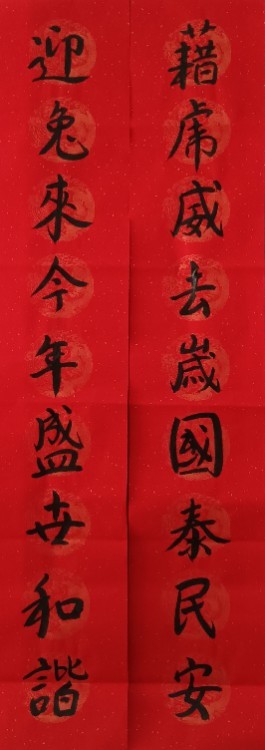 藉虎威去歲國泰民安
迎兔來今年盛世和諧